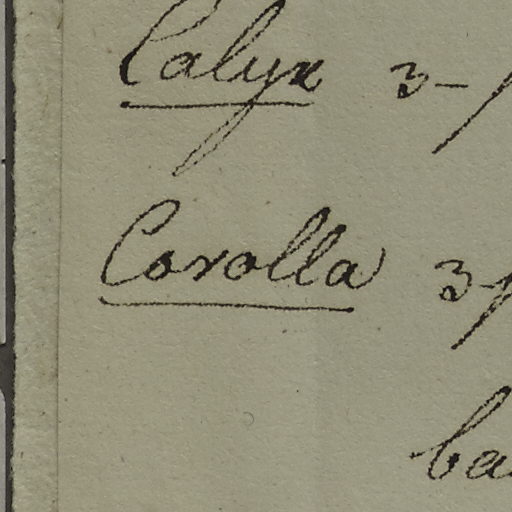 Calyx 3-p
Corolla 3-p
ba